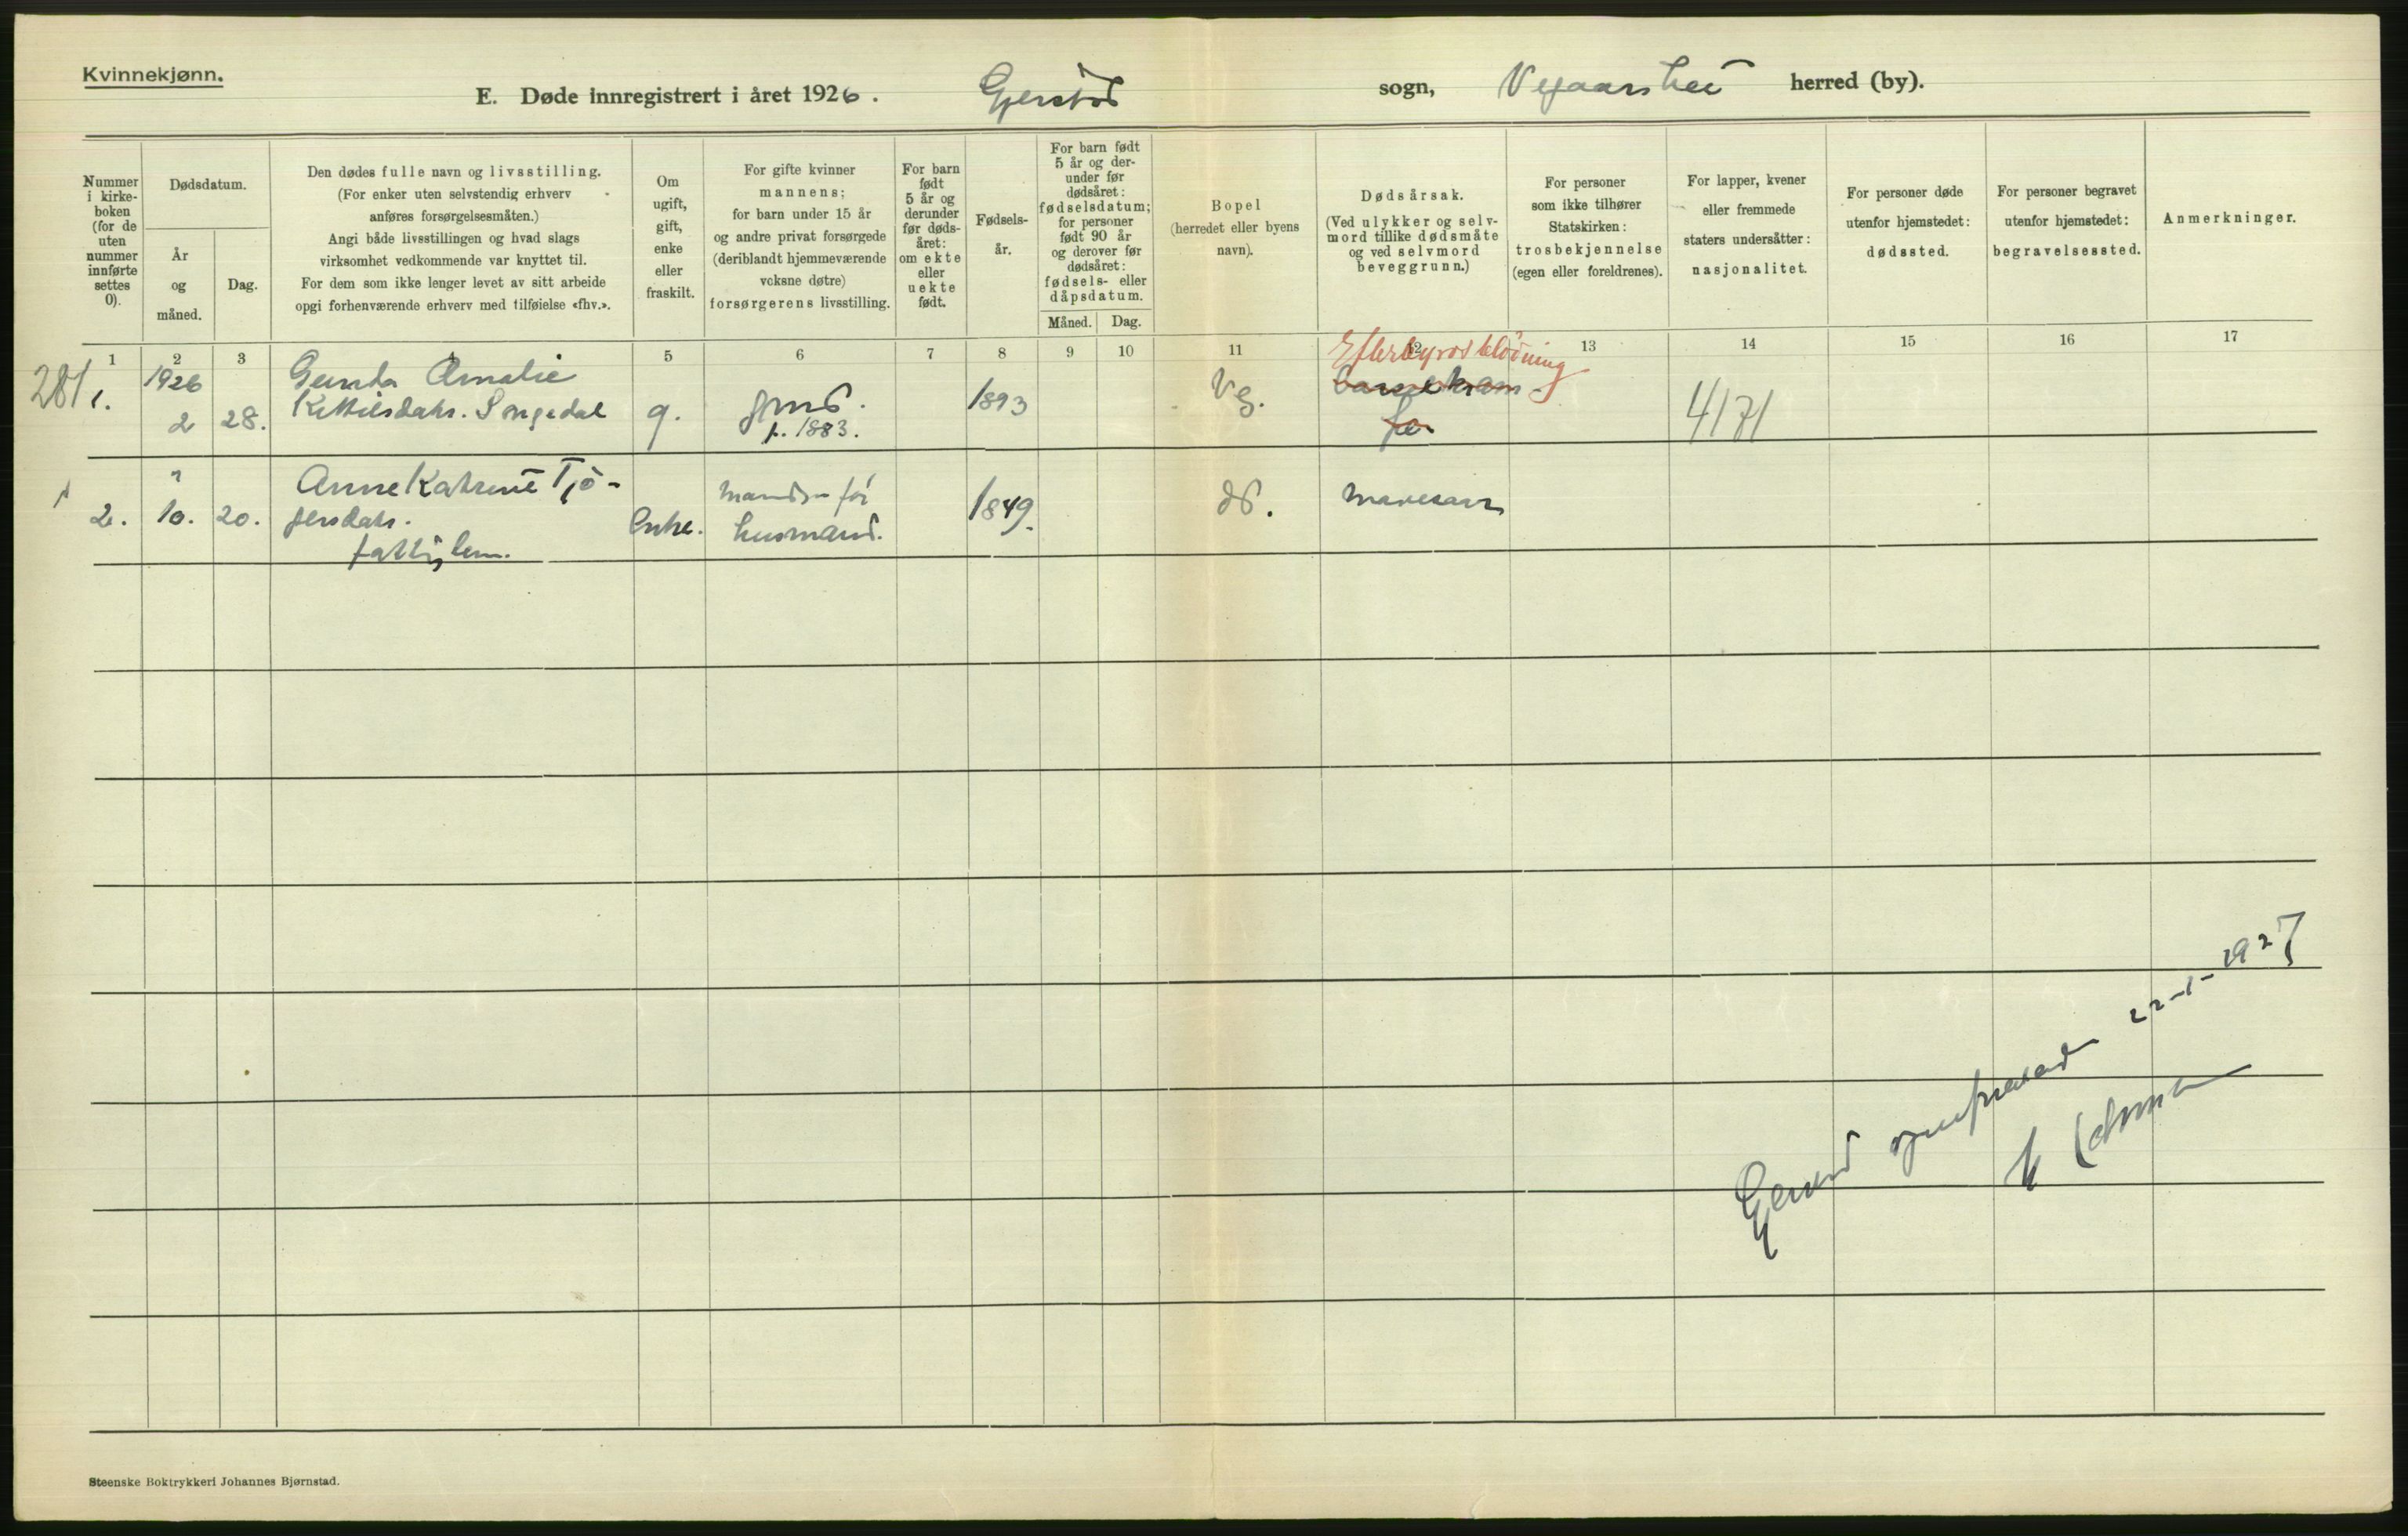 Kvinnekjønn.
E. Døde innregistrert i året 1926. Gjerstad sogn, Vegaarshei herred (by).
Nummer i kirke-boken (for de uten nummer innførte settes 0).
Dødsdatum.
År og måned.
Dag.
Den dødes fulle navn og livsstilling.
(For enker uten selvstendig erhverv
anføres forsørgelsesmåten.)
Angi både livsstillingen og hvad slags
virksomhet vedkommende var knyttet til.
For dem som ikke lenger levet av sitt arbeide
opgi forhenværende erhverv med tilføielse «fhv.».
Om ugift, gift, enke eller fraskilt.
For gifte kvinner
mannens;
for barn under 15 år
og andre privat forsørgede
(deriblandt hjemmeværende
voksne døtre)
forsørgerens livsstilling.
For barn født 5 år og derunder før døds-året: om ekte eller uekte født.
Fødsels-år.
For barn født
5 år og der-
under før
dødsåret:
fødselsdatum;
for personer
født 90 år
og derover før
dødsåret:
fødsels- eller
dåpsdatum.
Måned. Dag.
Bopel
(herredet eller byens
navn).
Dødsårsak.
(Ved ulykker og selv-
mord tillike dødsmåte
og ved selvmord
beveggrunn.)
For personer
som ikke tilhører
Statskirken:
trosbekjennelse
(egen eller foreldrenes).
For lapper, kvener
eller fremmede
staters undersåtter:
nasjonalitet.
For personer døde
utenfor hjemstedet:
dødssted.
For personer begravet
utenfor hjemstedet:
begravelsessted.
Anmerkninger.
1 2 3 4 5 6 7 8 9 10 11 12 13 14 15 16 17
281 1. 1926 2 28. Gunda Amalie
Kittilsdatr. Songedal g. gmd. f. 1883. 1893 Vg. Efterbyrdsblödning
4171
2. " 10. 20. Anne Katrine Tjö-
stersdatr.
fattiglem. Enke. husmand. 1849. do. mavesaar
22-1-1927
Gjerstad sogneprestembed
Steenske Boktrykkeri Johannes Bjørnstad.